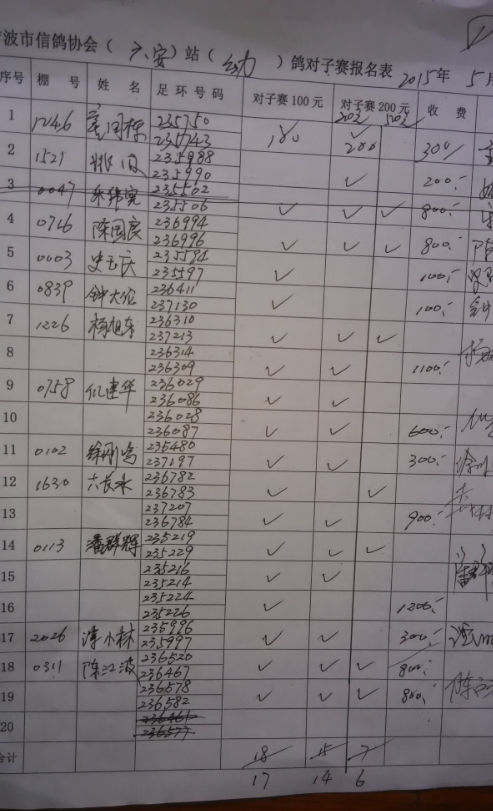 波市信鸽协会（六安）站（幼）鸽对子赛报名表 2015年 5月
序号 棚号 姓名 足环号码 对子赛100元 对子赛200元 收费
202 502
1 1246 235750 180 ✓
235743 200 300/
2 1521 235988
235990 ✓ 200.-
3 0047 235562
235506 ✓ ✓ ✓ 800.-
4 0726 陈国良 236994
236996 ✓ ✓ ✓ 800.-
5 0003 史玉庆 235594
235597 ✓ 100.-
6 0839 钟大伦 236411
237130 ✓ 100.-
7 1226 杨旭东 236310
237213 ✓ ✓ ✓
8 236314
236309 ✓ ✓ 1100.-
9 0758 仇建华 236029
236086 ✓ ✓
10 236028
236087 ✓ ✓ 600.-
11 0102 徐刚鸣 236480
237197 ✓ ✓ 300.-
12 1630 六长水 236782
236783 ✓ ✓
13 237207
236784 ✓ ✓ 900.-
14 0113 潘群辉 235219
235229 ✓ ✓ ✓
15 235216
235214 ✓ ✓
16 235224
235226 ✓ 1200.-
17 2026 小林 235996
235997 ✓ ✓ 300.-
18 0311 陈江波 236520
236467 ✓ ✓ ✓ 800.-
19 236578
236582 ✓ ✓ ✓ 800.-
20 236461
236577
合计 18 15 7
17 14 6